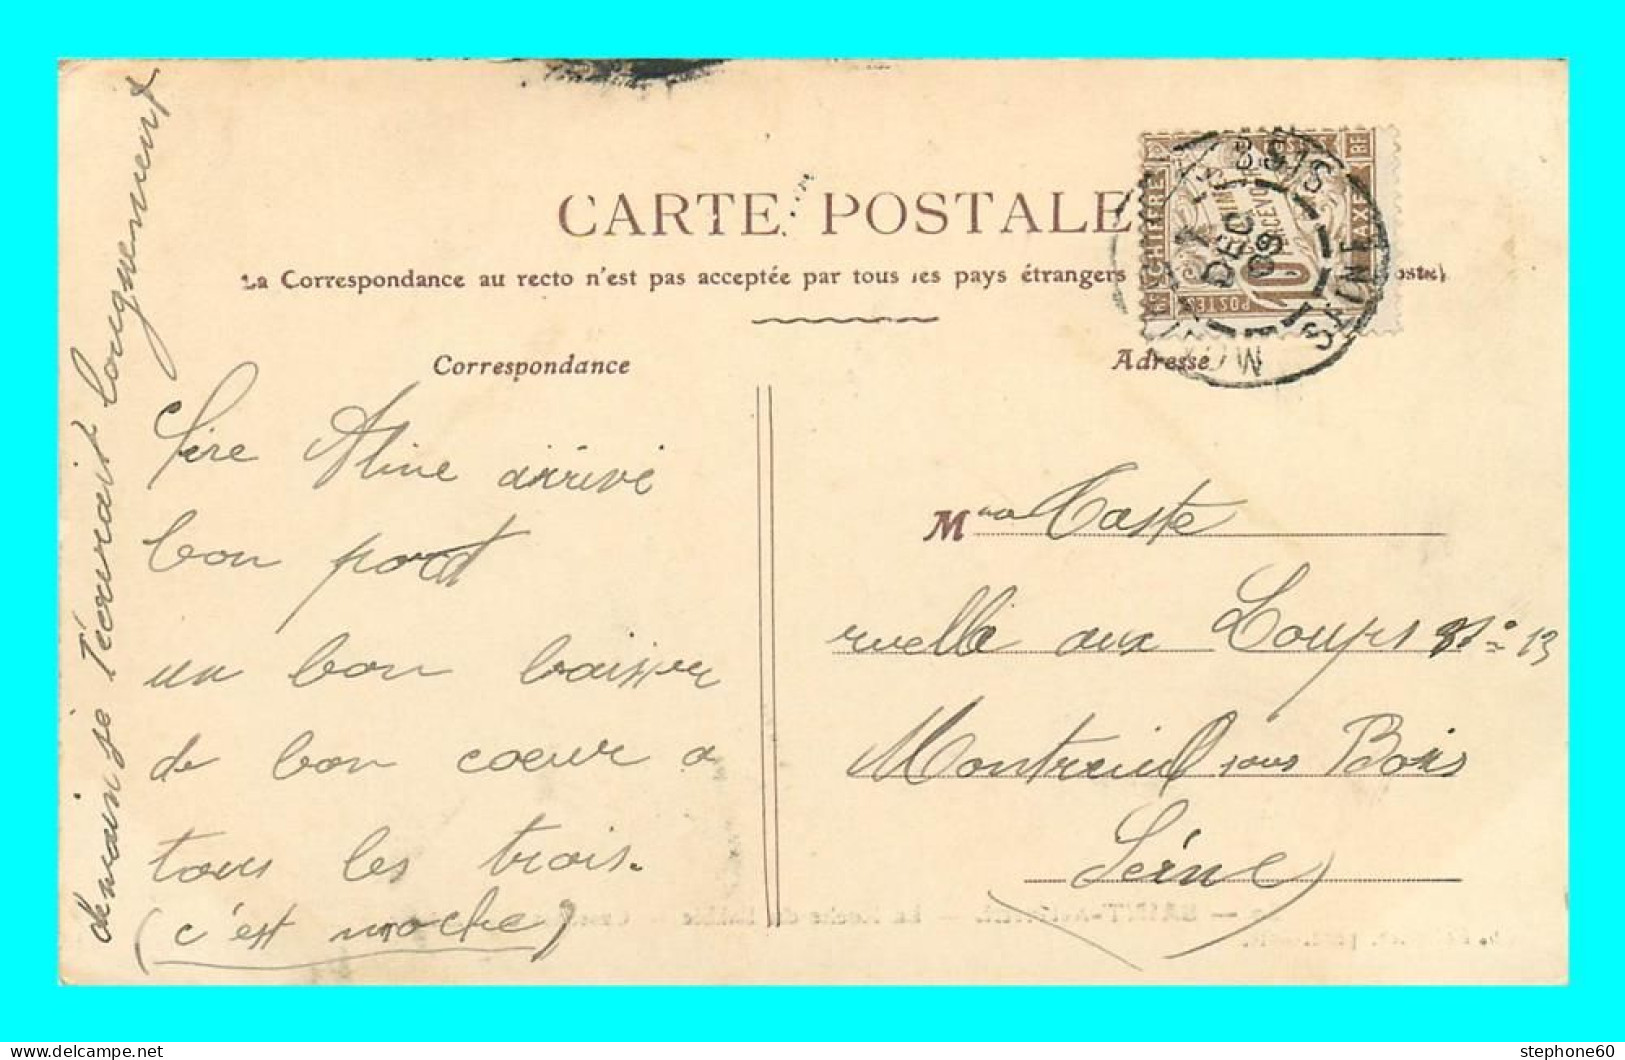 CARTE POSTALE
La Correspondance au recto n'est pas acceptée par tous les pays étrangers
Correspondance
Adresse
CHIFFRE
TAXE
10
POSTES
BOIS
DEC
09
SEINE
Aline arrivé
bon port
un bon baiser
de bon coeur a
tous les trois.
(c'est moche)
demain je t'écurait longuement
Mme Caste
ruelle aux Loups No 13
Montreuil sous Bois
Seine
SAINT-
stephone60